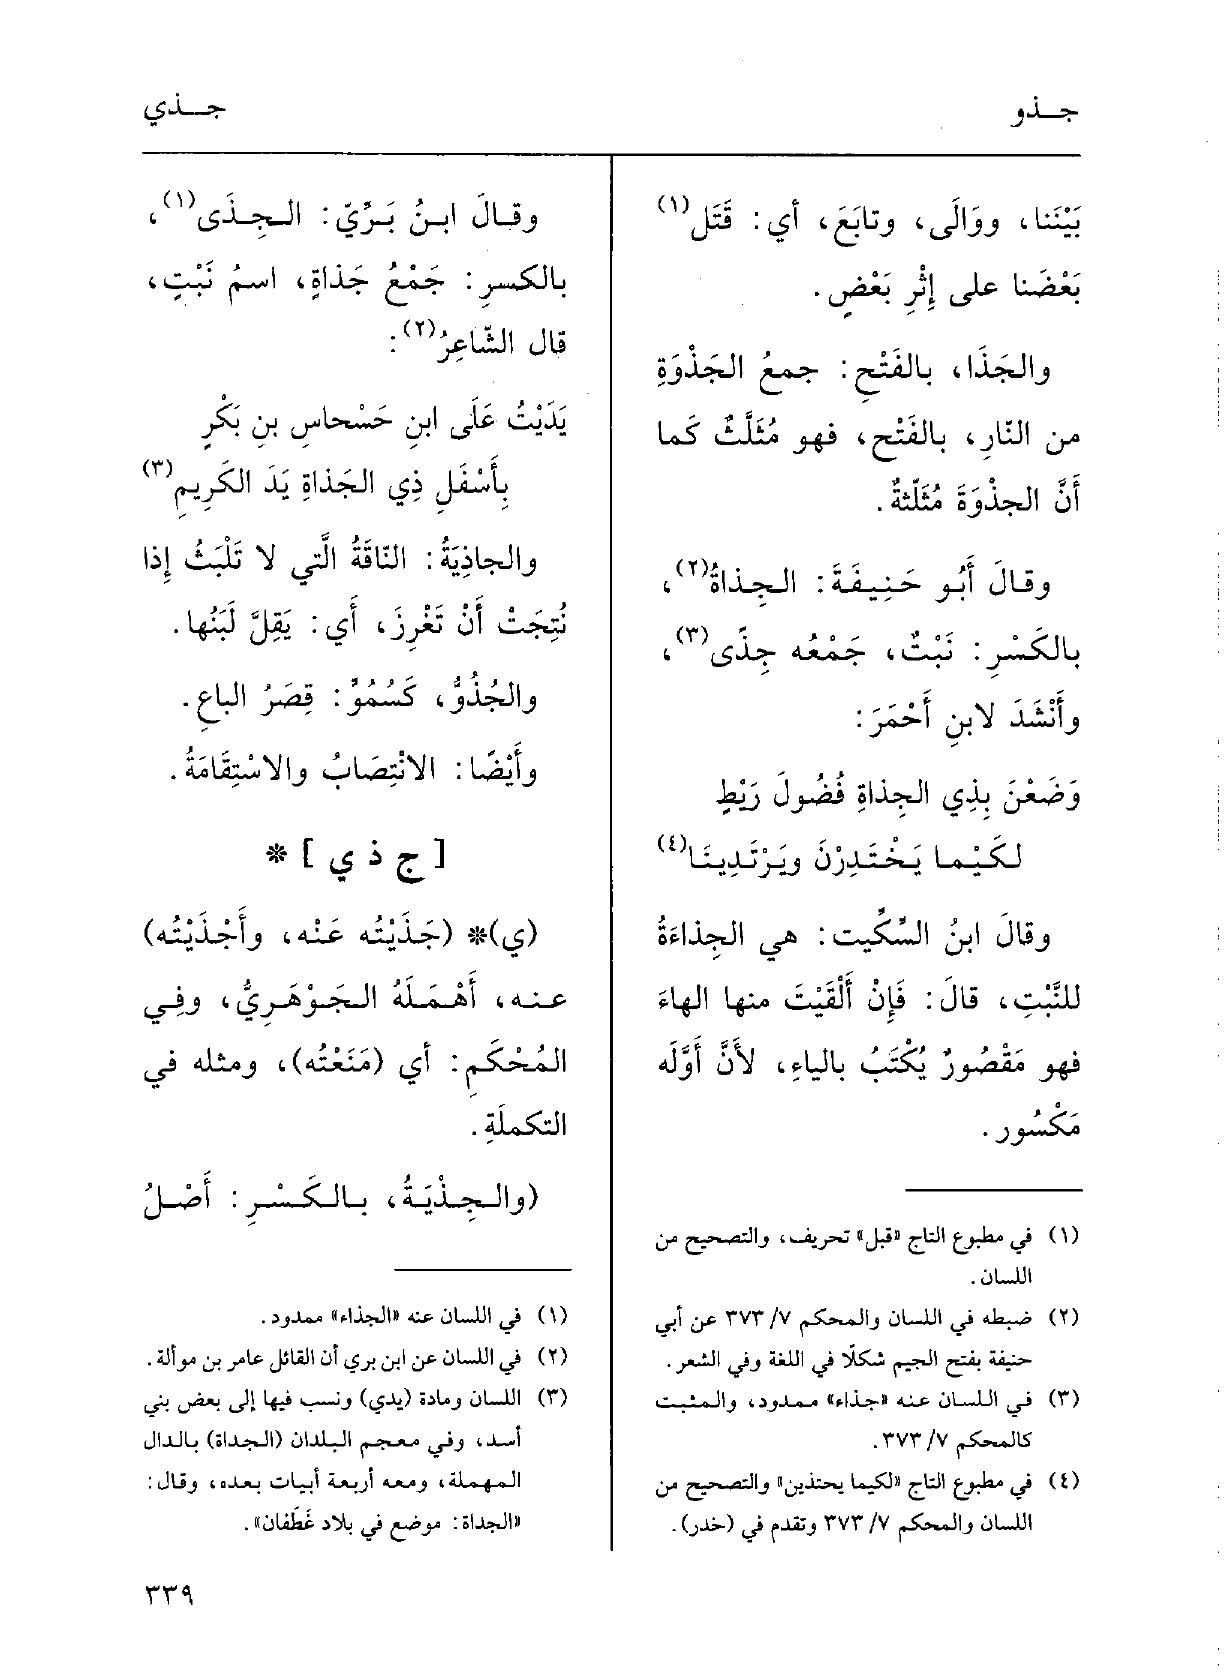 جـذو
جـذي
بَيْنَنا، ووَالَى، وتابَعَ، أي: قَتَل(١)
بَعْضَنا على إِثْرِ بَعْضٍ.
والجَذَا، بالفَتْحِ: جمعُ الجَذْوَةِ
من النّارِ، بالفَتْحِ، فهو مُثَلَّثٌ كَما
أَنَّ الجذْوَةَ مُثَلّثةٌ.
وقالَ أَبُو حَنِيفَةَ: الجِذاةُ(٢)،
بالكَسْرِ: نَبْتٌ، جَمْعُه جِذًى(٣)،
وأَنْشَدَ لابنِ أَحْمَرَ:
وَضَعْنَ بِذِي الجِذاةِ فُضُولَ رَيْطٍ
لكَيْما يَخْتَدِرْنَ ويَرْتَدِينَا(٤)
وقالَ ابنُ السِّكِّيت: هي الجِذاءَةُ
للنَّبْتِ، قالَ: فَإِنْ أَلْقَيْتَ منها الهاءَ
فهو مَقْصُورٌ يُكْتَبُ بالياءِ، لأَنَّ أَوَّلَه
مَكْسُور.
(١) في مطبوع التاج «قبل» تحريف، والتصحيح من
اللسان.
(٢) ضبطه في اللسان والمحكم ٧/ ٣٧٣ عن أبي
حنيفة بفتح الجيم شكلًا في اللغة وفي الشعر.
(٣) في اللسان عنه «جذاء» ممدود، والمثبت
كالمحكم ٧/ ٣٧٣.
(٤) في مطبوع التاج «لكيما يحتذين» والتصحيح من
اللسان والمحكم ٧/ ٣٧٣ وتقدم في (خدر).
وقالَ ابنُ بَرِّيّ: الجِذَى(١)،
بالكسرِ: جَمْعُ جَذاةٍ، اسمُ نَبْتٍ،
قال الشّاعِرُ(٢):
يَدَيْتُ عَلَى ابنِ حَسْحاسِ بنِ بَكْرٍ
بِأَسْفَلِ ذِي الجَذاةِ يَدَ الكَرِيمِ(٣)
والجاذِيَةُ: النّاقَةُ الَّتي لا تَلْبَثُ إِذا
نُتِجَتْ أَنْ تَغْرِزَ، أَي: يَقِلَّ لَبَنُها.
والجُذُوُّ، كَسُمُوٍّ: قِصَرُ الباعِ.
وأَيْضًا: الانْتِصَابُ والاسْتِقَامَةُ.
[ ج ذ ي ] *
(ي)* (جَذَيْتُه عَنْه، وأَجْذَيْتُه)
عنه، أَهْمَلَهُ الجَوْهَرِيُّ، وفِي
المُحْكَمِ: أي (مَنَعْتُه)، ومثله في
التكملَةِ.
(والجِذْيَةُ، بالكَسْرِ: أَصْلُ
(١) في اللسان عنه «الجذاء» ممدود.
(٢) في اللسان عن ابن بري أن القائل عامر بن موألة.
(٣) اللسان ومادة (يدي) ونسب فيها إلى بعض بني
أسد، وفي معجم البلدان (الجداة) بالدال
المهملة، ومعه أربعة أبيات بعده، وقال:
«الجداة: موضع في بلاد غَطَفان».
٣٣٩